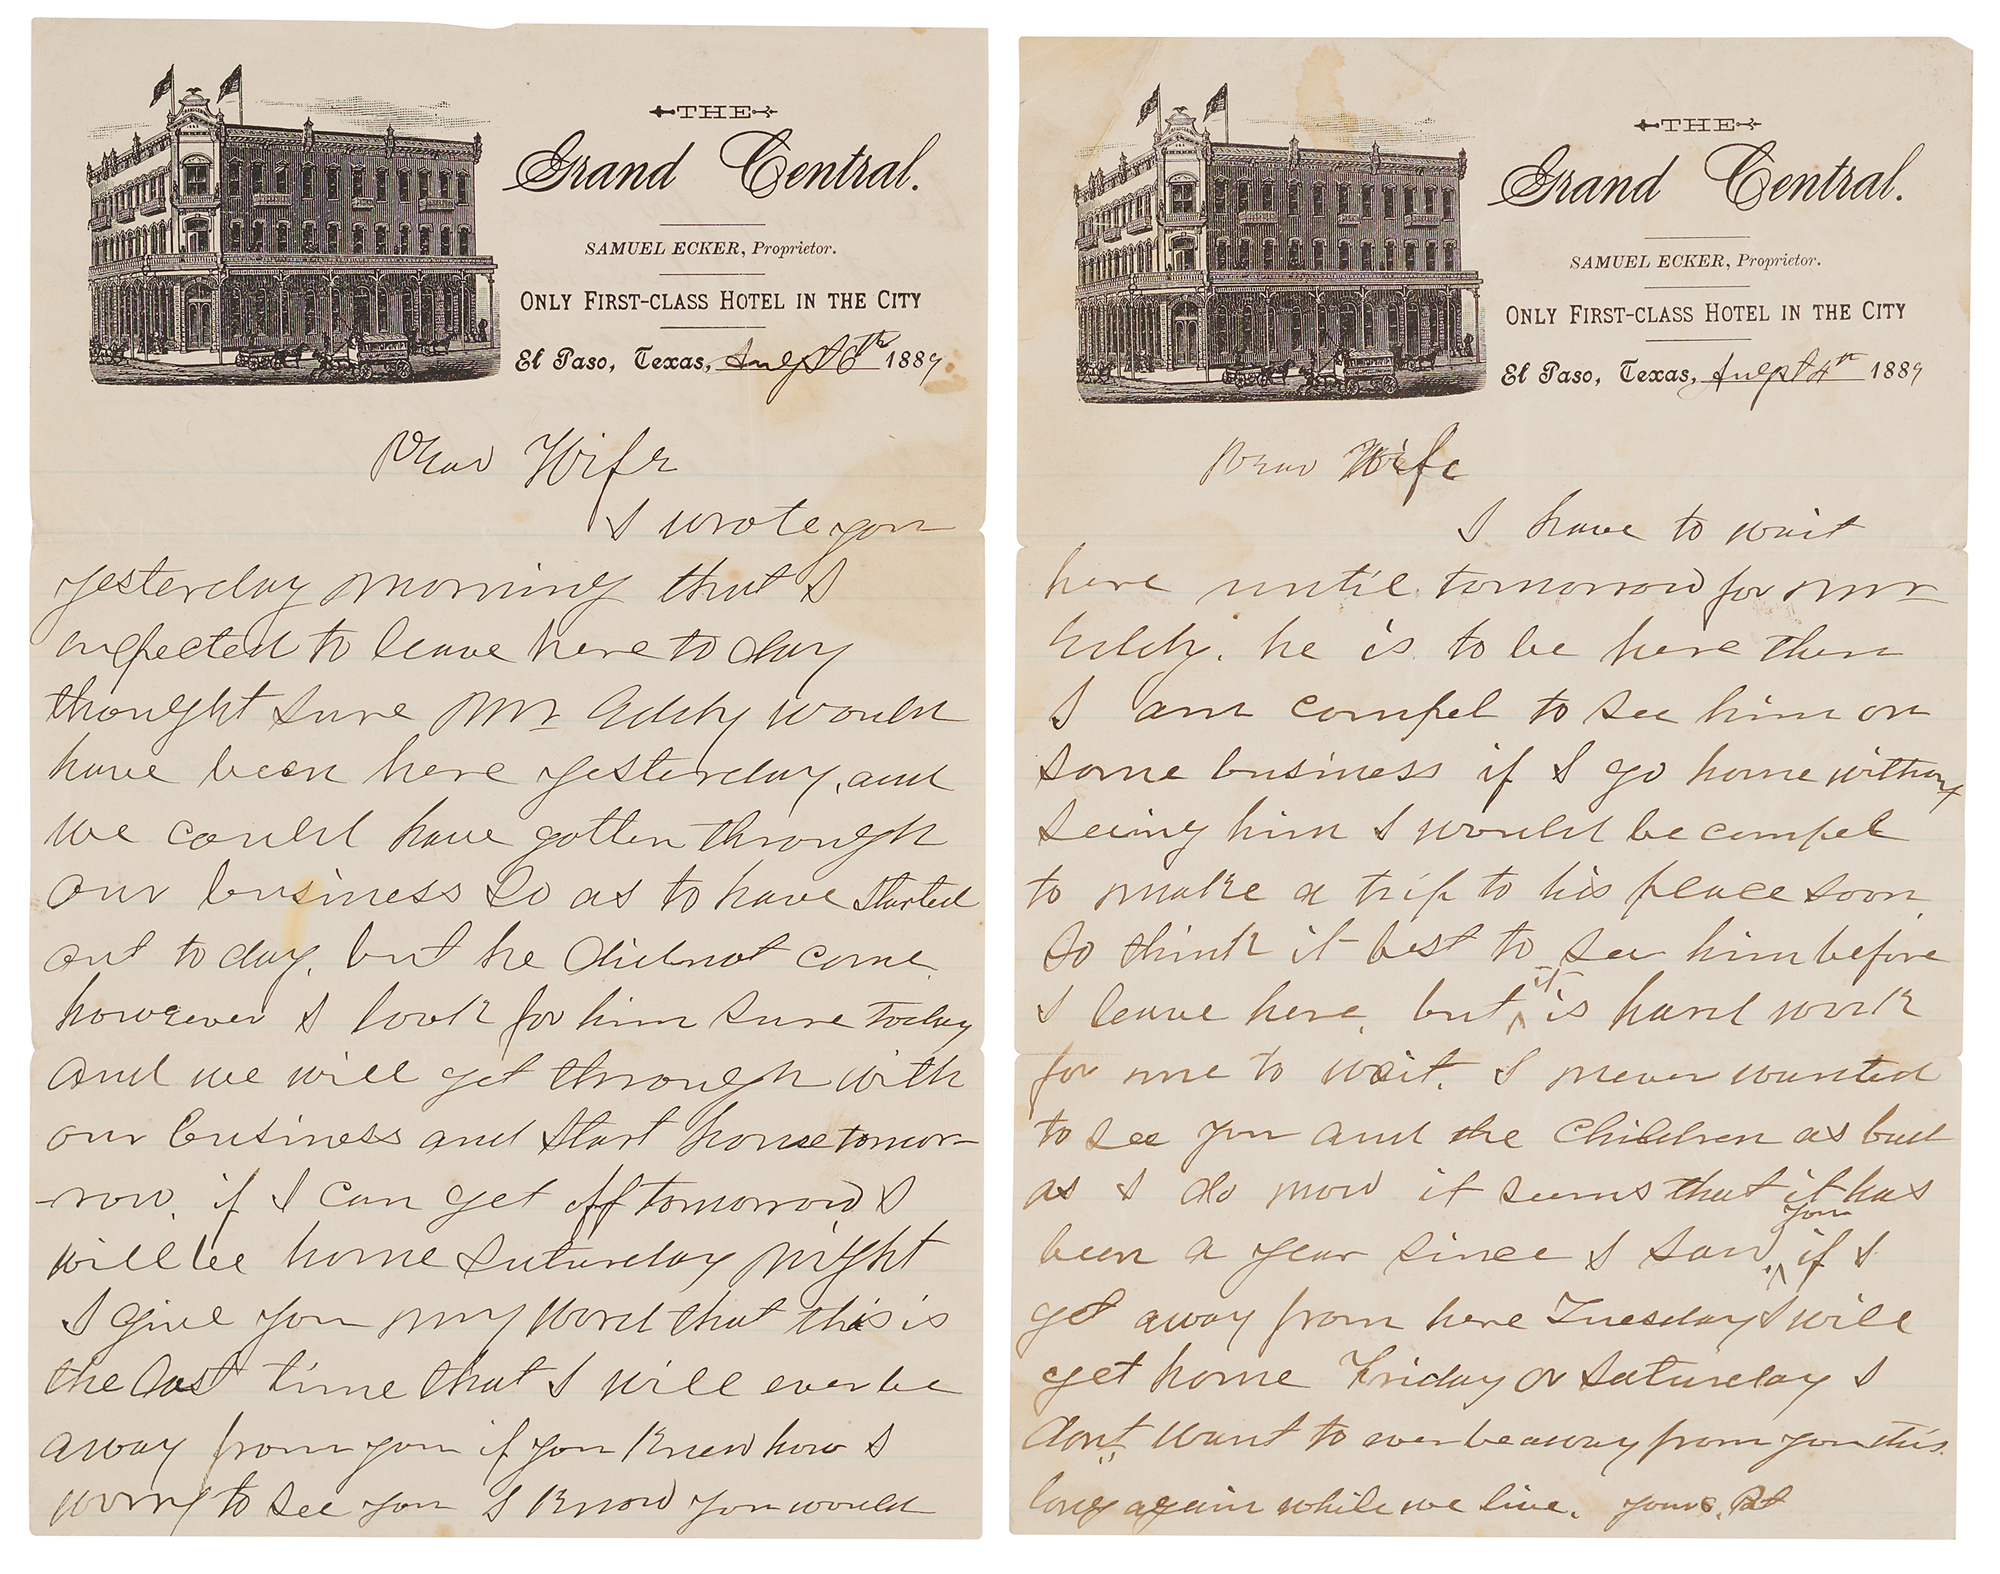 THE
Grand Central.
SAMUEL ECKER, Proprietor.
ONLY FIRST-CLASS HOTEL IN THE CITY
El Paso, Texas, Augst 6th 1889
Dear Wife
I wrote you
yesterday morning that I
expected to leave here to day
thought sure Mr Eddy would
have been here yesterday, and
we could have gotten through
our business so as to have started
out to day, but he did not come.
however I look for him sure today
and we will get through with
our business and start home tomor-
-row. if I can get off tomorrow I
will be home Saturday night
I give you my word that this is
the last time that I will ever be
away from you if you knew how I
worry to see you I know you would
THE
Grand Central.
SAMUEL ECKER, Proprietor.
ONLY FIRST-CLASS HOTEL IN THE CITY
El Paso, Texas, Augst 4th 1889
Dear Wife
I have to wait
here until tomorrow for Mr
Eddy. he is to be here then
I am compel to see him on
some business if I go home without
seeing him I would be compel
to make a trip to his place soon
so think it best to see him before
I leave here, but it is hard work
for me to wait. I never wanted
to see you and the Children as bad
as I do now it seems that it has
been a year since I saw you if I
get away from here Tuesday I will
get home Friday or Saturday I
don't want to ever be away from you this
long again while we live. yours, Pat